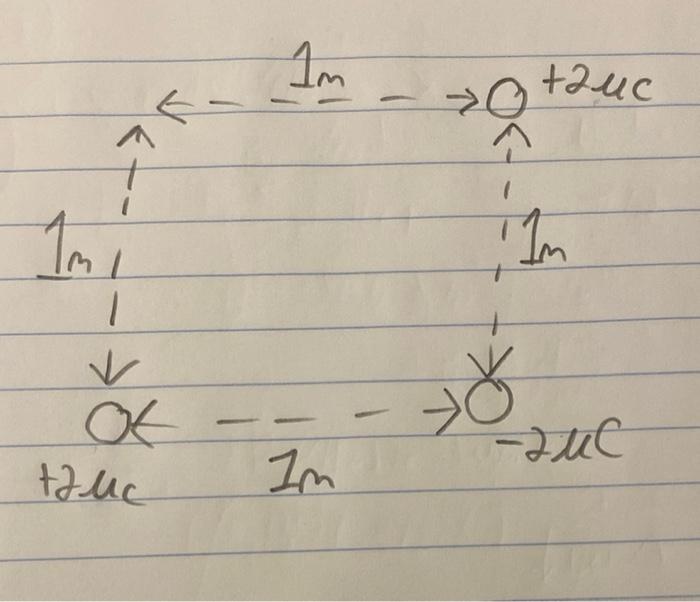 1m
+2μC
1m
1m
-2μC
+2μC
1m